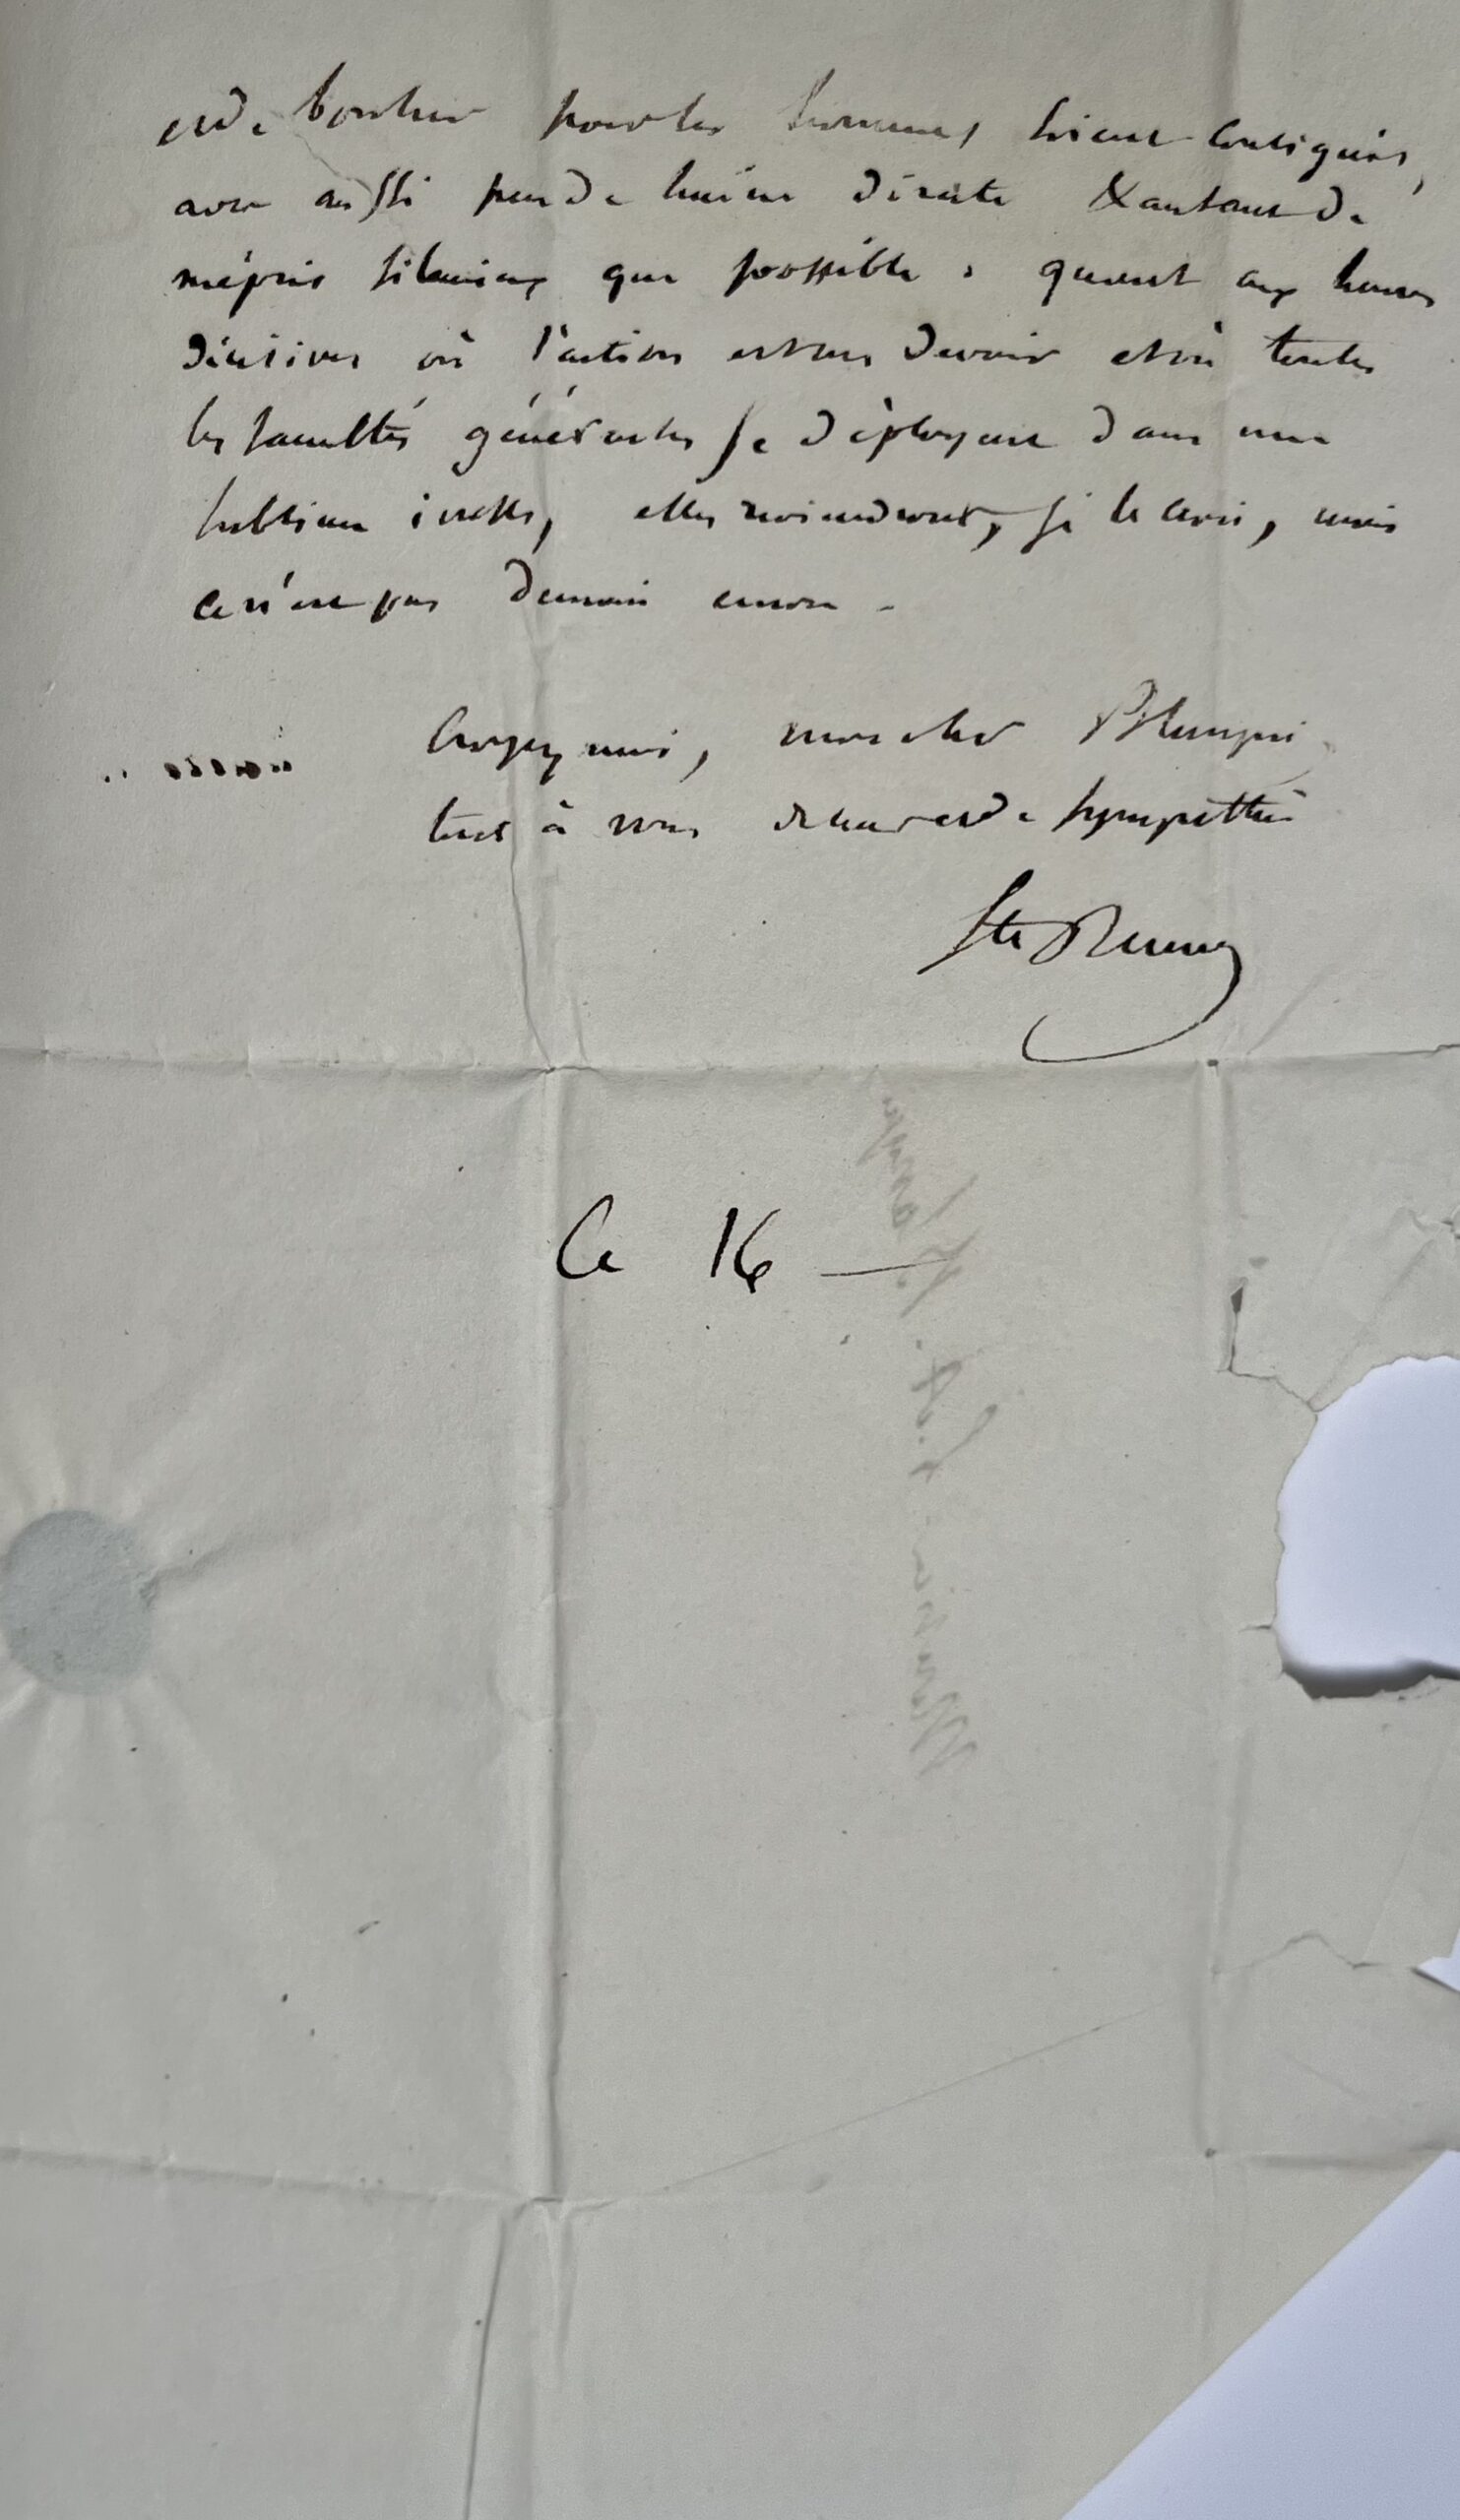 et de bonheur pour les hommes, soient consignées,
avec aussi peu de haine directe & autant de
mépris silencieux que possible ; quant aux heures
décisives où l'action est un devoir et où toutes
les facultés généreuses se déployent dans une
sublime ivresse, elles reviendront, je le crois, mais
ce n'est pas demain encore.
Croyez moi, mon cher
tout à vous de cœur et de sympathie
Ste Beuve
Ce 16 —